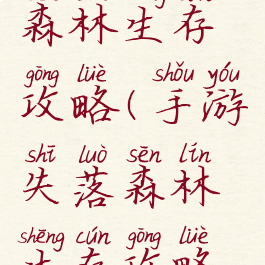 森林生存
gōng lüè shǒu yóu
攻略(手游
shī luò sēn lín
失落森林
shēng cún gōng lüè
生存攻略